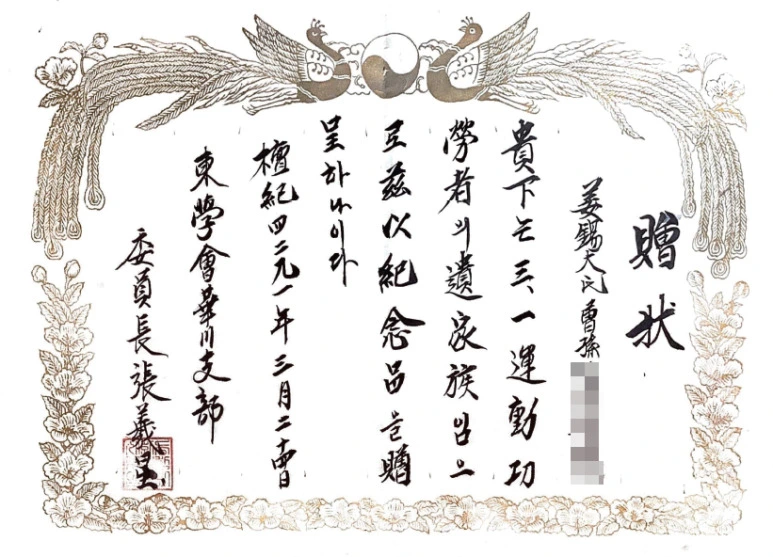 贈狀
姜錫大氏曾孫
貴下는 三、一運動功
勞者의 遺家族임으
로 玆以紀念品을 贈
呈하나이다
檀紀四二九一年 三月二十四日
東學會華川支部
委員長 張義